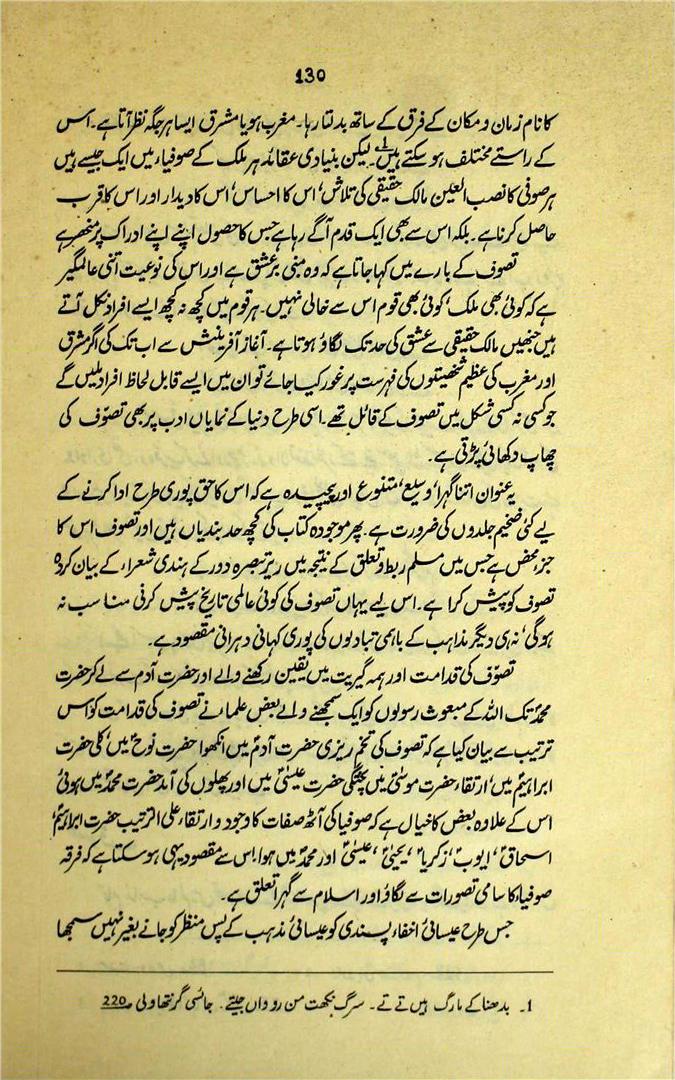 130
کا نام زمان و مکان کے فرق کے ساتھ بدلتا رہا۔ مغرب ہو یا مشرق ایسا ہر جگہ نظر آتا ہے۔ اس
کے راستے مختلف ہو سکتے ہیں1۔ لیکن بنیادی عقائد ہر ملک کے صوفیاء میں ایک جیسے ہیں
ہر صوفی کا نصب العین مالک حقیقی کی تلاش، اس کا احساس، اس کا دیدار اور اس کا قرب
حاصل کرنا ہے۔ بلکہ اس سے بھی ایک قدم آگے رہا ہے جس کا حصول اپنے اپنے ادراک پر منحصر ہے
تصوف کے بارے میں کہا جاتا ہے کہ وہ مبنی بر عشق ہے اور اس کی نوعیت اتنی عالمگیر
ہے کہ کوئی بھی ملک، کوئی بھی قوم اس سے خالی نہیں۔ ہر قوم میں کچھ نہ کچھ ایسے افراد نکل آتے
ہیں جنھیں مالک حقیقی سے عشق کی حد تک لگاؤ ہوتا ہے۔ آغاز آفرینش سے اب تک کی اگر مشرق
اور مغرب کی عظیم شخصیتوں کی فہرست پر غور کیا جائے تو ان میں ایسے قابل لحاظ افراد ملیں گے
جو کسی نہ کسی شکل میں تصوف کے قائل تھے۔ اسی طرح دنیا کے نمایاں ادب پر بھی تصوّف کی
چھاپ دکھائی پڑتی ہے۔
یہ عنوان اتنا گہرا، وسیع، متنوع اور پیچیدہ ہے کہ اس کا حق پوری طرح ادا کرنے کے
لیے کئی ضخیم جلدوں کی ضرورت ہے۔ پھر موجودہ کتاب کی کچھ حد بندیاں ہیں اور تصوف اس کا
جزء محض ہے جس میں مسلم ربط و تعلق کے نتیجہ میں زیر تبصرہ دور کے ہندی شعراء کے بیان کردہ
تصوف کو پیش کرا ہے۔ اس لیے یہاں تصوف کی کوئی عالمی تاریخ پیش کرنی مناسب نہ
ہوگی، نہ ہی دیگر مذاہب کے باہمی تبادلوں کی پوری کہانی دہرانی مقصود ہے۔
تصوّف کی قدامت اور ہمہ گیریت میں یقین رکھنے والے اور حضرت آدم سے لے کر حضرت
محمدؐ تک اللہ کے مبعوث رسولوں کو ایک سمجھنے والے بعض علما نے تصوف کی قدامت کو اس
ترتیب سے بیان کیا ہے کہ تصوف کی تخم ریزی حضرت آدمؑ میں انکھوا حضرت نوحؑ میں، کلی حضرت
ابراہیمؑ میں، ارتقاء حضرت موسیٰؑ میں پختگی حضرت عیسیٰؑ میں اور پھلوں کی آمد حضرت محمدؐ میں ہوئی
اس کے علاوہ بعض کا خیال ہے کہ صوفیا کی آٹھ صفات کا وجود و ارتقاء علی الترتیب حضرت ابراہیمؑ،
اسحاقؑ، ایوبؑ، زکریاؑ، یحییٰؑ، عیسیٰؑ اور محمدؐ میں ہوا۔ اس سے مقصود یہی ہو سکتا ہے کہ فرقہ
صوفیاء کا سامی تصورات سے لگاؤ اور اسلام سے گہرا تعلق ہے۔
جس طرح عیسائی اخفاء پسندی کو عیسائی مذہب کے پس منظر کو جانے بغیر نہیں سمجھا
1۔ بدھنا کے مارگ ہیں تے تے۔ سرگ نکھت من رو واں جیتے۔ جائسی گرنتھاولی ص220